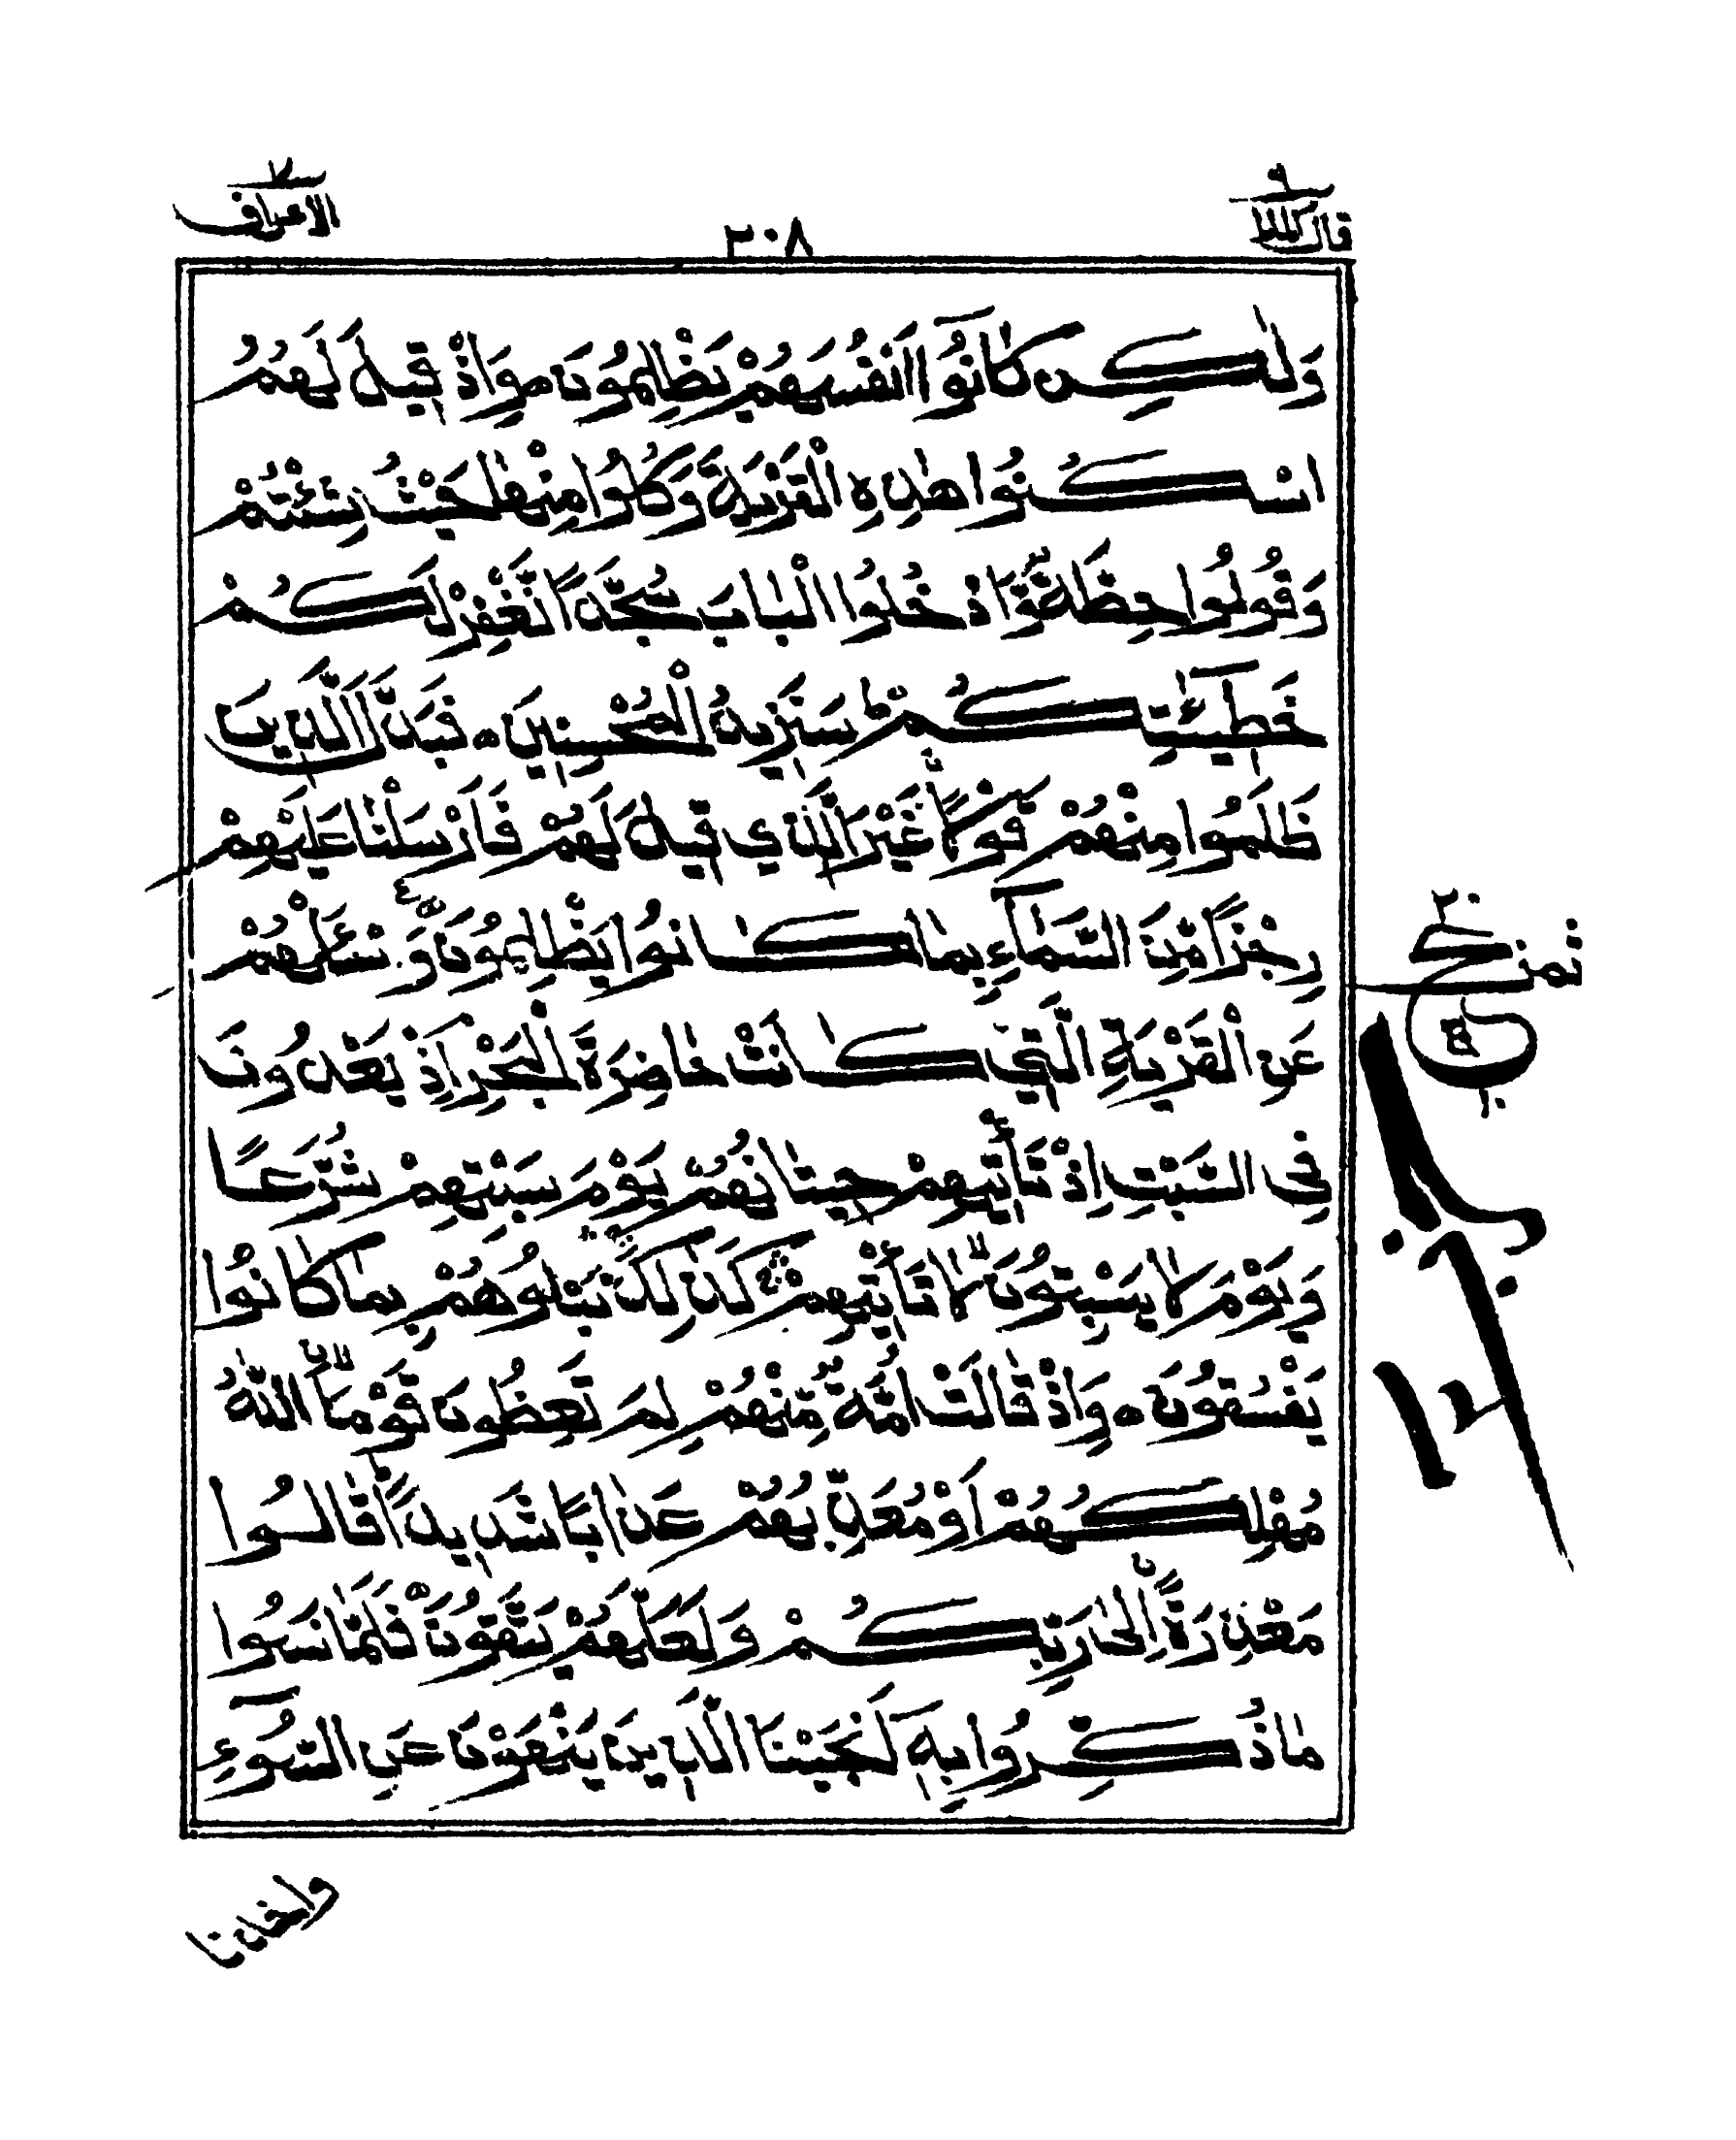 الاعراف ٧
٢٠٨
قال الملا ٩
وَلٰكِنْ كَانُوْٓا اَنْفُسَهُمْ يَظْلِمُوْنَ ۝ وَاِذْ قِيْلَ لَهُمُ
اسْكُنُوْا هٰذِهِ الْقَرْيَةَ وَكُلُوْا مِنْهَا حَيْثُ شِئْتُمْ
وَقُوْلُوْا حِطَّةٌ وَّادْخُلُوا الْبَابَ سُجَّدًا نَّغْفِرْ لَكُمْ
خَطِيْٓـٰٔتِكُمْ ؕ سَنَزِيْدُ الْمُحْسِنِيْنَ ۝ فَبَدَّلَ الَّذِيْنَ
ظَلَمُوْا مِنْهُمْ قَوْلًا غَيْرَ الَّذِيْ قِيْلَ لَهُمْ فَاَرْسَلْنَا عَلَيْهِمْ
رِجْزًا مِّنَ السَّمَآءِ بِمَا كَانُوْا يَظْلِمُوْنَ ۝ وَسْـَٔلْهُمْ
عَنِ الْقَرْيَةِ الَّتِيْ كَانَتْ حَاضِرَةَ الْبَحْرِ اِذْ يَعْدُوْنَ
فِى السَّبْتِ اِذْ تَاْتِيْهِمْ حِيْتَانُهُمْ يَوْمَ سَبْتِهِمْ شُرَّعًا
وَّيَوْمَ لَا يَسْبِتُوْنَ ۙ لَا تَاْتِيْهِمْ ۛ كَذٰلِكَ ۛ نَبْلُوْهُمْ بِمَا كَانُوْا
يَفْسُقُوْنَ ۝ وَاِذْ قَالَتْ اُمَّةٌ مِّنْهُمْ لِمَ تَعِظُوْنَ قَوْمَاۨ ۙ اللّٰهُ
مُهْلِكُهُمْ اَوْ مُعَذِّبُهُمْ عَذَابًا شَدِيْدًا ؕ قَالُوْا
مَعْذِرَةً اِلٰى رَبِّكُمْ وَلَعَلَّهُمْ يَتَّقُوْنَ ۝ فَلَمَّا نَسُوْا
مَا ذُكِّرُوْا بِهٖٓ اَنْجَيْنَا الَّذِيْنَ يَنْهَوْنَ عَنِ السُّوْٓءِ
ثمن
٢٠
ع
١٤
واخذنا